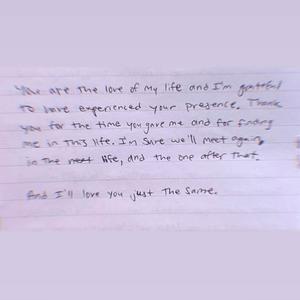 You are the love of my life and I'm grateful
to have experienced your presence. Thank
you for the time you gave me and for finding
me in this life. I'm sure we'll meet again,
in the next life, and the one after that.
And I'll love you just the same.